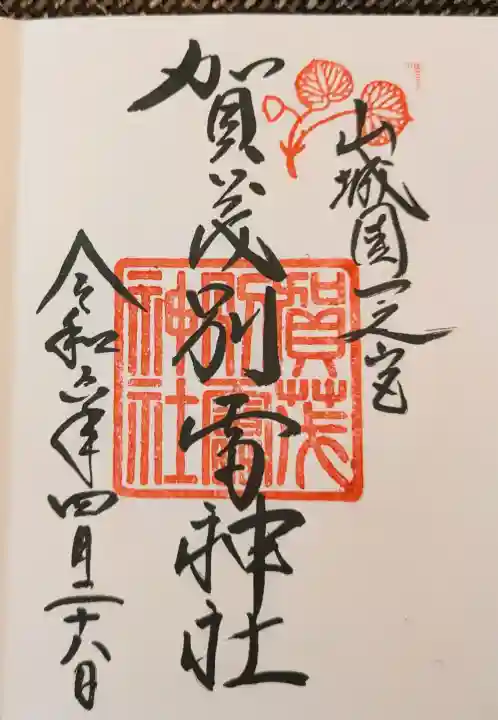 山城国一之宮
賀茂別雷神社
賀茂
別雷
神社
令和六年四月二十八日